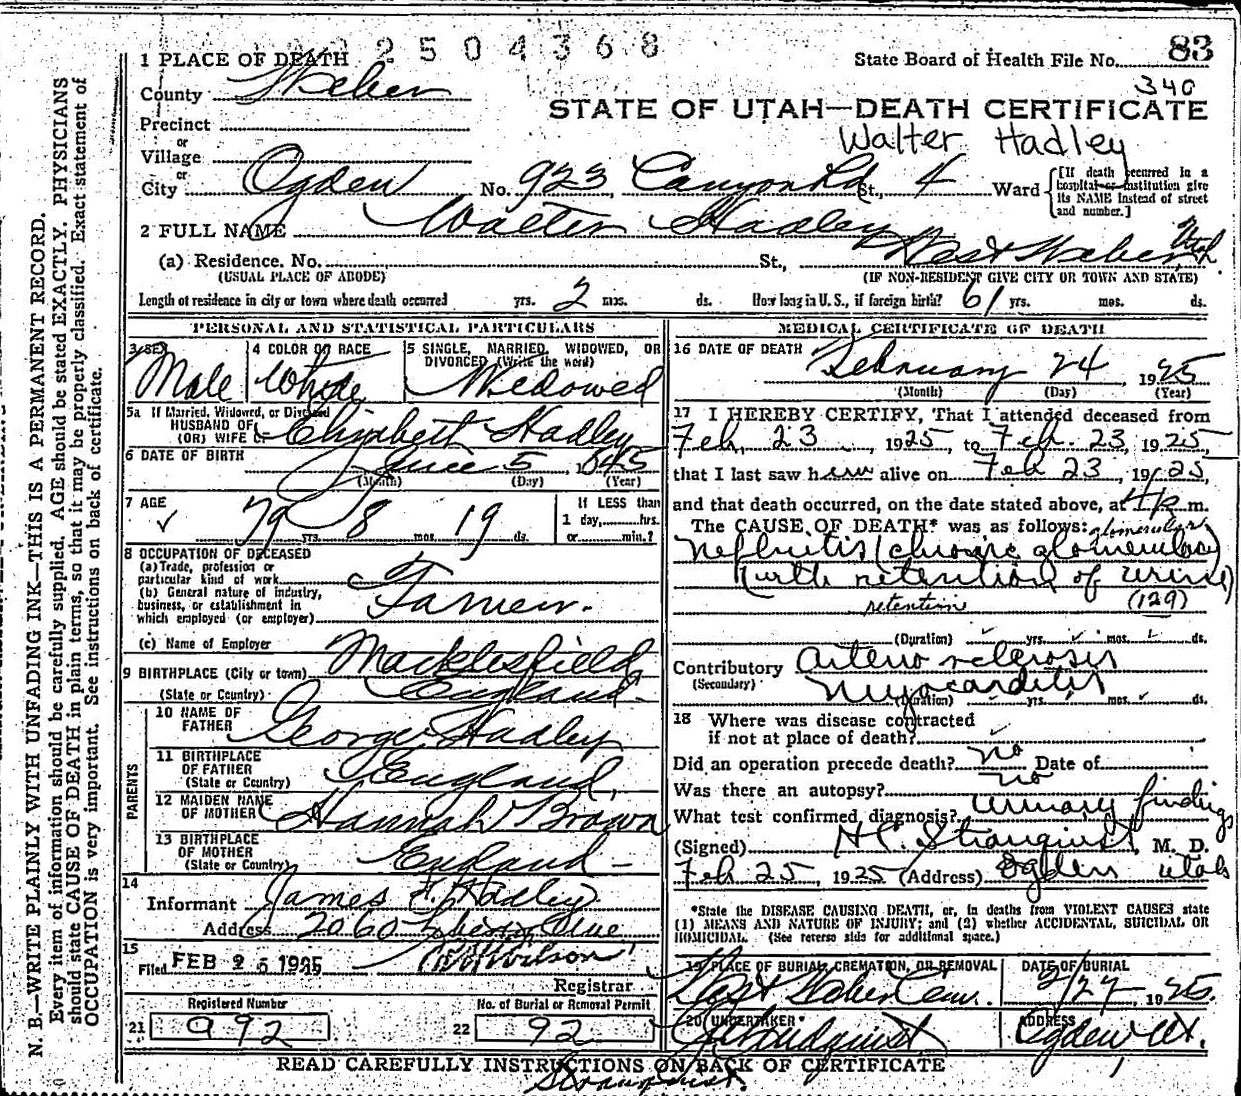 2504368
1 PLACE OF DEATH
State Board of Health File No. 83
340
County Weber
STATE OF UTAH—DEATH CERTIFICATE
Precinct
Walter Hadley
or
Village
or
City Ogden No. 923 Canyon Rd St., 4 Ward
[If death occurred in a hospital or institution give its NAME instead of street and number.]
2 FULL NAME Walter Hadley
(a) Residence. No. St., West Weber Utah
(USUAL PLACE OF ABODE) (IF NON-RESIDENT GIVE CITY OR TOWN AND STATE)
Length of residence in city or town where death occurred yrs. 2 mos. ds. How long in U. S., if foreign birth? 61 yrs. mos. ds.
PERSONAL AND STATISTICAL PARTICULARS
3 SEX Male
4 COLOR OR RACE White
5 SINGLE, MARRIED, WIDOWED, OR DIVORCED (Write the word)
Widowed
5a If Married, Widowed, or Divorced
HUSBAND OF
(OR) WIFE OF Elizabeth Hadley
6 DATE OF BIRTH June 5, 1845
(Month) (Day) (Year)
7 AGE
79 yrs. 8 mos. 19 ds.
If LESS than
1 day, hrs.
or min.?
8 OCCUPATION OF DECEASED
(a) Trade, profession or
particular kind of work
(b) General nature of industry,
business, or establishment in
which employed (or employer) Farmer.
(c) Name of Employer
9 BIRTHPLACE (City or town) Macklesfield
(State or Country) England
PARENTS
10 NAME OF
FATHER George Hadley
11 BIRTHPLACE
OF FATHER
(State or Country) England,
12 MAIDEN NAME
OF MOTHER Hannah Brown
13 BIRTHPLACE
OF MOTHER
(State or Country) England
14
Informant James F. Hadley
Address 2060 Liberty Ave
15
Filed FEB 25 1925
Registrar
Registered Number
21 992
No. of Burial or Removal Permit
22 92
MEDICAL CERTIFICATE OF DEATH
16 DATE OF DEATH
February 24, 1925
(Month) (Day) (Year)
17 I HEREBY CERTIFY, That I attended deceased from
Feb, 23, 1925, to Feb. 23, 1925,
that I last saw him alive on Feb 23, 1925,
and that death occurred, on the date stated above, at 4 p. m.
The CAUSE OF DEATH* was as follows: glomerular
Nephritis (chronic glomerular)
(with retention of urine)
retention (129)
(Duration) yrs. mos. ds.
Contributory arterio sclerosis
(Secondary) Myocarditis
(Duration) yrs. mos. ds.
18 Where was disease contracted
if not at place of death?
Did an operation precede death? no Date of
Was there an autopsy? no
What test confirmed diagnosis? urinary findings
(Signed) H.C. Stranquist, M. D.
Feb 25, 1925 (Address) Ogden Utah
*State the DISEASE CAUSING DEATH, or, in deaths from VIOLENT CAUSES state
(1) MEANS AND NATURE OF INJURY; and (2) whether ACCIDENTAL, SUICIDAL OR
HOMICIDAL. (See reverse side for additional space.)
19 PLACE OF BURIAL, CREMATION, OR REMOVAL
West Weber Cem.
DATE OF BURIAL
2/27, 1925.
20 UNDERTAKER
Lindquist
ADDRESS
Ogden Ut.
READ CAREFULLY INSTRUCTIONS ON BACK OF CERTIFICATE
Stranquist.
N. B.—WRITE PLAINLY WITH UNFADING INK—THIS IS A PERMANENT RECORD.
Every item of information should be carefully supplied. AGE should be stated EXACTLY. PHYSICIANS
should state CAUSE OF DEATH in plain terms, so that it may be properly classified. Exact statement of
OCCUPATION is very important. See instructions on back of certificate.